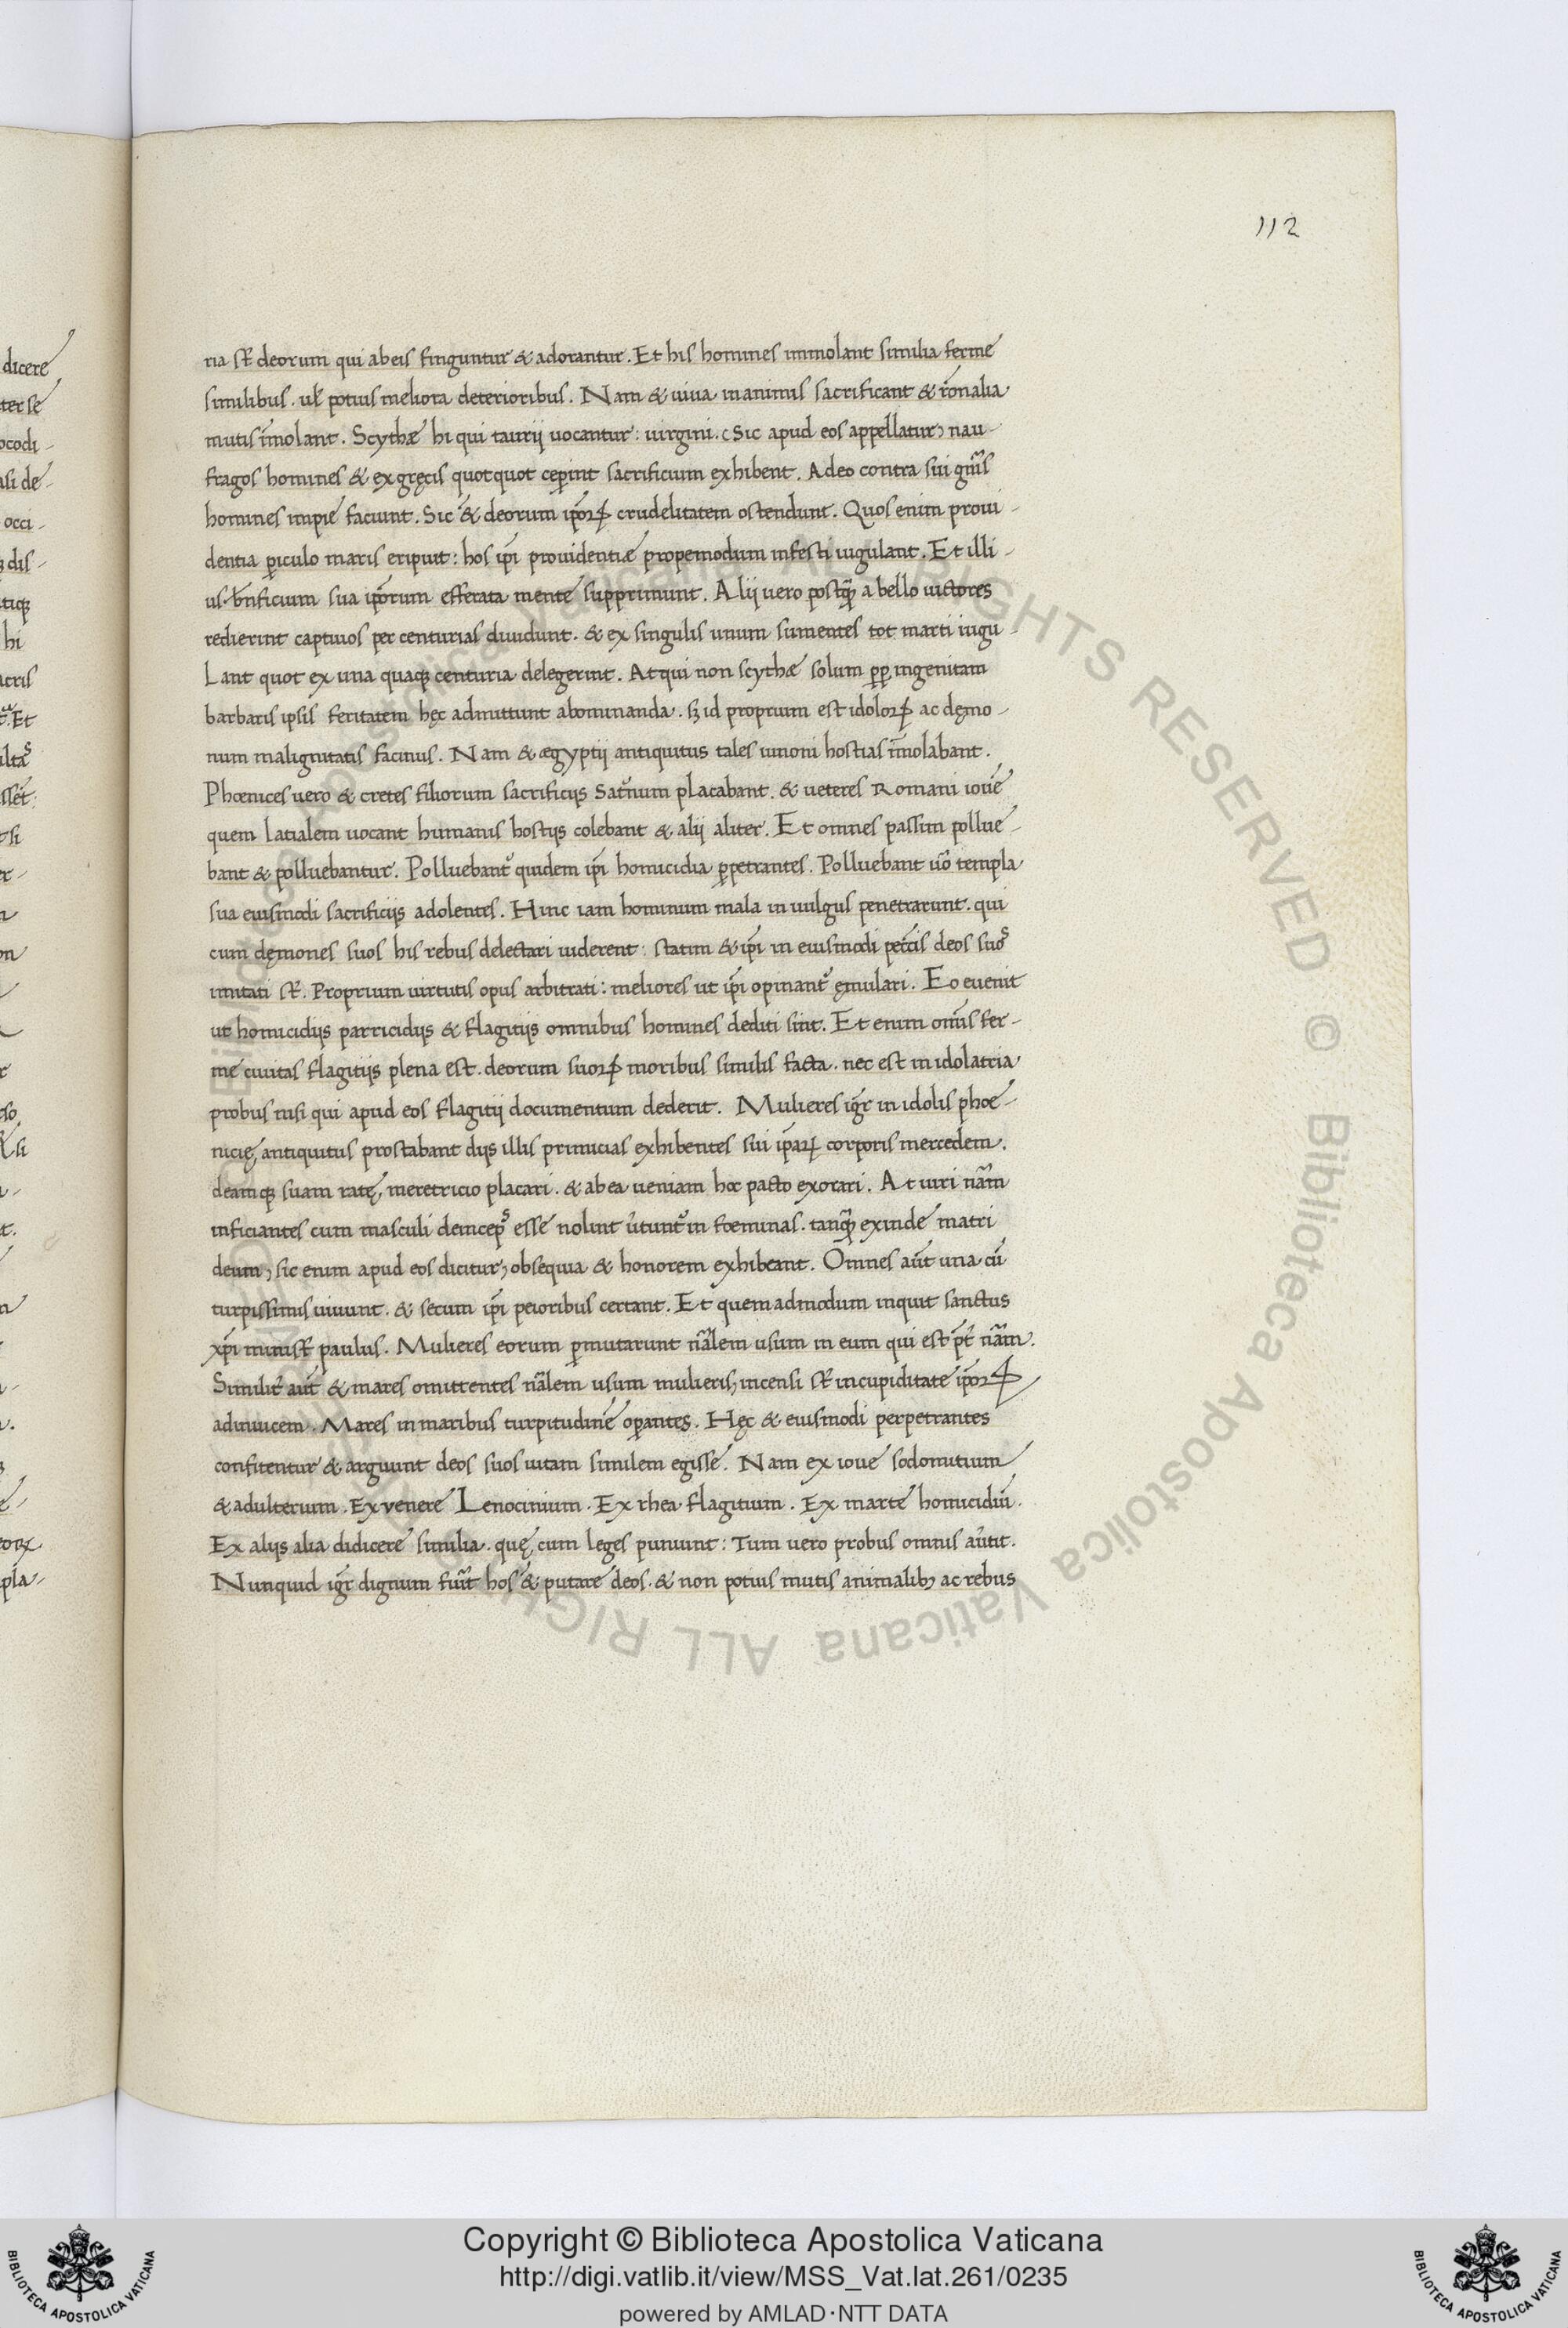 112
ria st̄ deorum qui ab eis finguntur & adorantur. Et his homines immolant similia ferme
similibus. ul̄ potius meliora deterioribus. Nam & uiua inanimis sacrificant & r̄onalia
mutis im̄olant. Scythæ hi qui taurij uocantur: uirgini. (Sic apud eos appellatur) nau-
fragos homines & ex gręcis quotquot cep̄int sacrificium exhibent. Adeo contra sui gn̄is
homines impie faciunt. Sic & deorum ip̄oꝝ crudelitatem ostendunt. Quos enim proui-
dentia ꝑiculo maris eripuit: hos ip̄i prouidentiæ propemodum infesti iugulant. Et illi-
us bn̄ficium sua ip̄orum efferata mente supprimunt. Alij uero postq̄ꝫ a bello uictores
redierint captiuos per centurias diuidunt. & ex singulis unum sumentes tot marti iugu-
Lant quot ex una quaqꝫ centuria delegerint. Atqui non scythæ solum ꝓꝑ ingenitam
barbaris ipsis feritatem hęc admittunt abominanda. sꝫ id proprium est idoloꝝ ac dęmo-
num malignitatis facinus. Nam & ægyptij antiquitus tales iunoni hostias im̄olabant.
Phœnices uero & cretes filiorum sacrificijs Sat̄num placabant. & ueteres Romani iouē
quem Latialem uocant humanis hostijs colebant & alij aliter. Et omnes passim pollue-
bant & polluebantur. Polluebant᷑ quidem ip̄i homicidia ꝑpetrantes. Polluebant uo᷑ templa
sua euismodi sacrificijs adolentes. Hinc iam hominum mala in uulgus penetrarunt. qui
cum dęmones suos his rebus delectari uiderent: statim & ip̄i in euismodi pecc̄is deos suos
imitati st̄. Proprium uirtutis opus arbitrati: meliores ut ip̄i opinant᷑ ęmulari. Eo euenit
ut homicidijs parricidijs & flagitijs omnibus homines dediti sint. Et enim om̄is fer-
me ciuitas flagitijs plena est. deorum suoꝝ moribus similis facta. nec est in idolatria
probus nisi qui apud eos flagitij documentum dederit. Mulieres igr̄ in idolis phoe-
nicię antiquitus prostabant dijs illis primicias exhibentes sui ip̄aꝝ corporis mercedem.
deamqꝫ suam ratę meretricio placari. & ab ea ueniam hoc pacto exorari. At uiri nāam
inficiantes cum masculi deinceps esse nolint u᷑tunt᷑ in fœminas. tanq̄ꝫ exinde matri
deum, sic enim apud eos dicitur, obsequia & honorem exhibeant. Omnes aūt una cū
turpissimis uiuunt. & secum ip̄i peioribus certant. Et quemadmodum inquit sanctus
xp̄i minist᷑ paulus. Mulieres eorum ꝑmutarunt nāalem usum in eum qui est p̄t᷑ nāam.
Similit᷑ aūt & mares omittentes nāalem usum mulieris, incensi st̄ in cupiditate ip̄oꝝ
adinuicem. Mares in maribus turpitudinē oꝑantes. Hęc & euismodi perpetrantes
confitentur & arguunt deos suos uitam similem egisse. Nam ex ioue sodomitium
& adulterium. Ex venere Lenocinium. Ex rhea flagitium. Ex marte homicidiū.
Ex alijs alia didicere similia. quę cum leges puniunt: Tum uero probus omnis au᷑tit.
Nunquid igr̄ dignum fuīt hos & putare deos. & non potius mutis animalibꝫ ac rebus
Copyright © Biblioteca Apostolica Vaticana
http://digi.vatlib.it/view/MSS_Vat.lat.261/0235
powered by AMLAD·NTT DATA